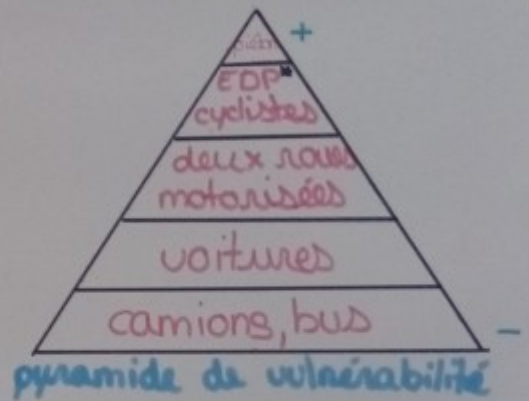 +
EDP*
cyclistes
deux roues
motorisées
voitures
camions, bus
-
pyramide de vulnérabilité